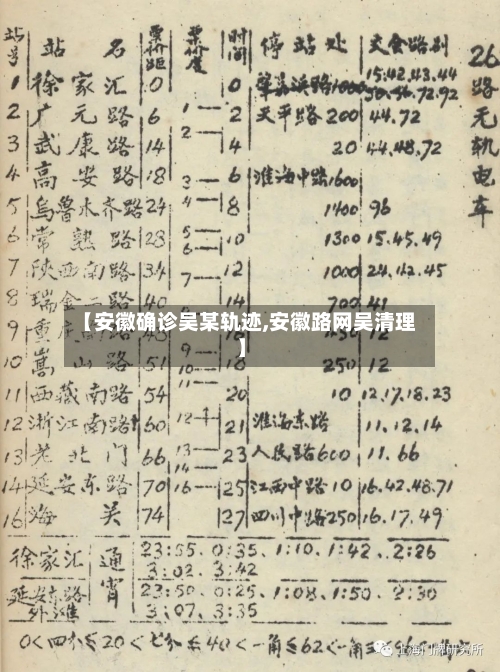 站号 站名 票价距 票价度 时间 停站处 交会路别
26路无轨电车
1 徐家汇 0 0 肇嘉浜路1000 15.42.43.44
50.56.72.92
2 广元路 6 1 2 天平路200 44.72
3 武康路 14 2 4 20 44.48.72
4 高安路 18 3 6 淮海中路1600
5 乌鲁木齐路 24 4 8 1400 96
6 常熟路 28 5 6 10 1300 15.45.49
7 陕西南路 34 7 12 1000 24.42.45
8 瑞金二路 40 14 41
【安徽确诊吴某轨迹,安徽路网吴清理
】
9 重庆 12
10 嵩山路 51 18 250 12
11 西藏南路 54 20 10 12.17.18.23
12 浙江南路 60 12 21 淮海东路 11.12.14
13 老北门 66 13 14 23 人民路600 11.66
14 延安东路 70 16 25 江西中路10 16.42.48.71
16 海关 74 27 四川中路250 16.17.49
徐家汇 通宵 23:55.0:35.1:10.1:42.2:26
3:02.3:42
延安东路外滩 23:50.0:25.1:08.1:50.2:30
3:07.3:35
0<四分≤20<七分≤40<一角≤62<一角三
上海门牌研究所